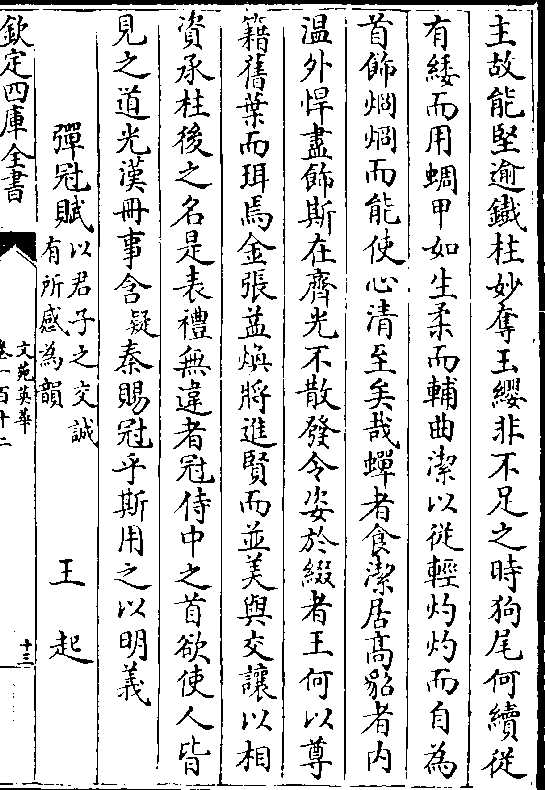 主故能堅逾鐵柱妙奪玉纓非不足之時狗尾何續從
有緌而用蜩甲如生柔而輔曲潔以從輕灼灼而自為
首飾烱烱而能使心清至矣哉蟬者食潔居高貂者内
温外悍盡飾斯在齊光不散發令姿於綴者王何以尊
籍舊葉而珥焉金張葢煥將進賢而並美與交讓以相
資承柱後之名是表禮無違者冠侍中之首欲使人皆
見之道光漢冊事含疑秦賜冠乎斯用之以明義
彈冠賦以君子之交誠有所感為韻 王起
欽定四庫全書
文苑英華
卷一百十二
十三